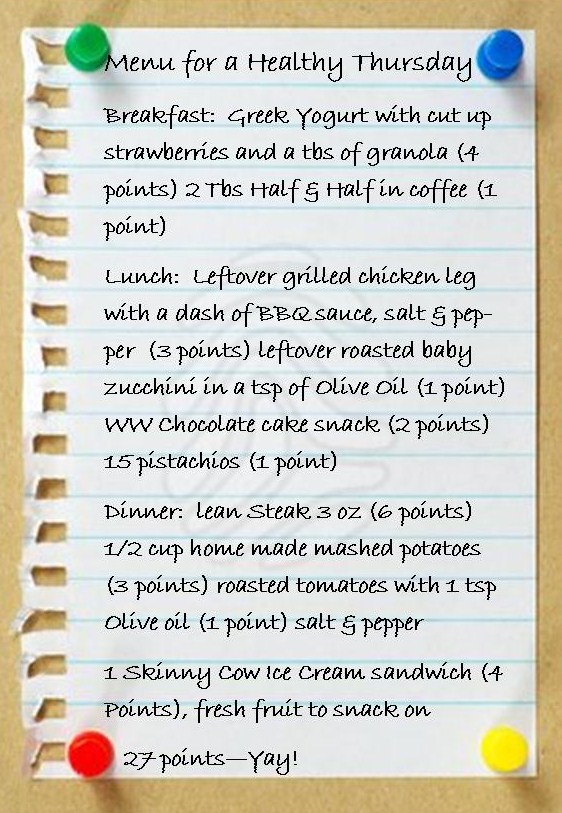 Menu for a Healthy Thursday
Breakfast: Greek Yogurt with cut up
strawberries and a tbs of granola (4
points) 2 Tbs Half & Half in coffee (1
point)
Lunch: Leftover grilled chicken leg
with a dash of BBQ sauce, salt & pep-
per (3 points) leftover roasted baby
zucchini in a tsp of Olive Oil (1 point)
WW Chocolate cake snack (2 points)
15 pistachios (1 point)
Dinner: lean Steak 3 oz (6 points)
1/2 cup home made mashed potatoes
(3 points) roasted tomatoes with 1 tsp
Olive oil (1 point) salt & pepper
1 Skinny Cow Ice Cream sandwich (4
Points), fresh fruit to snack on
27 points—Yay!